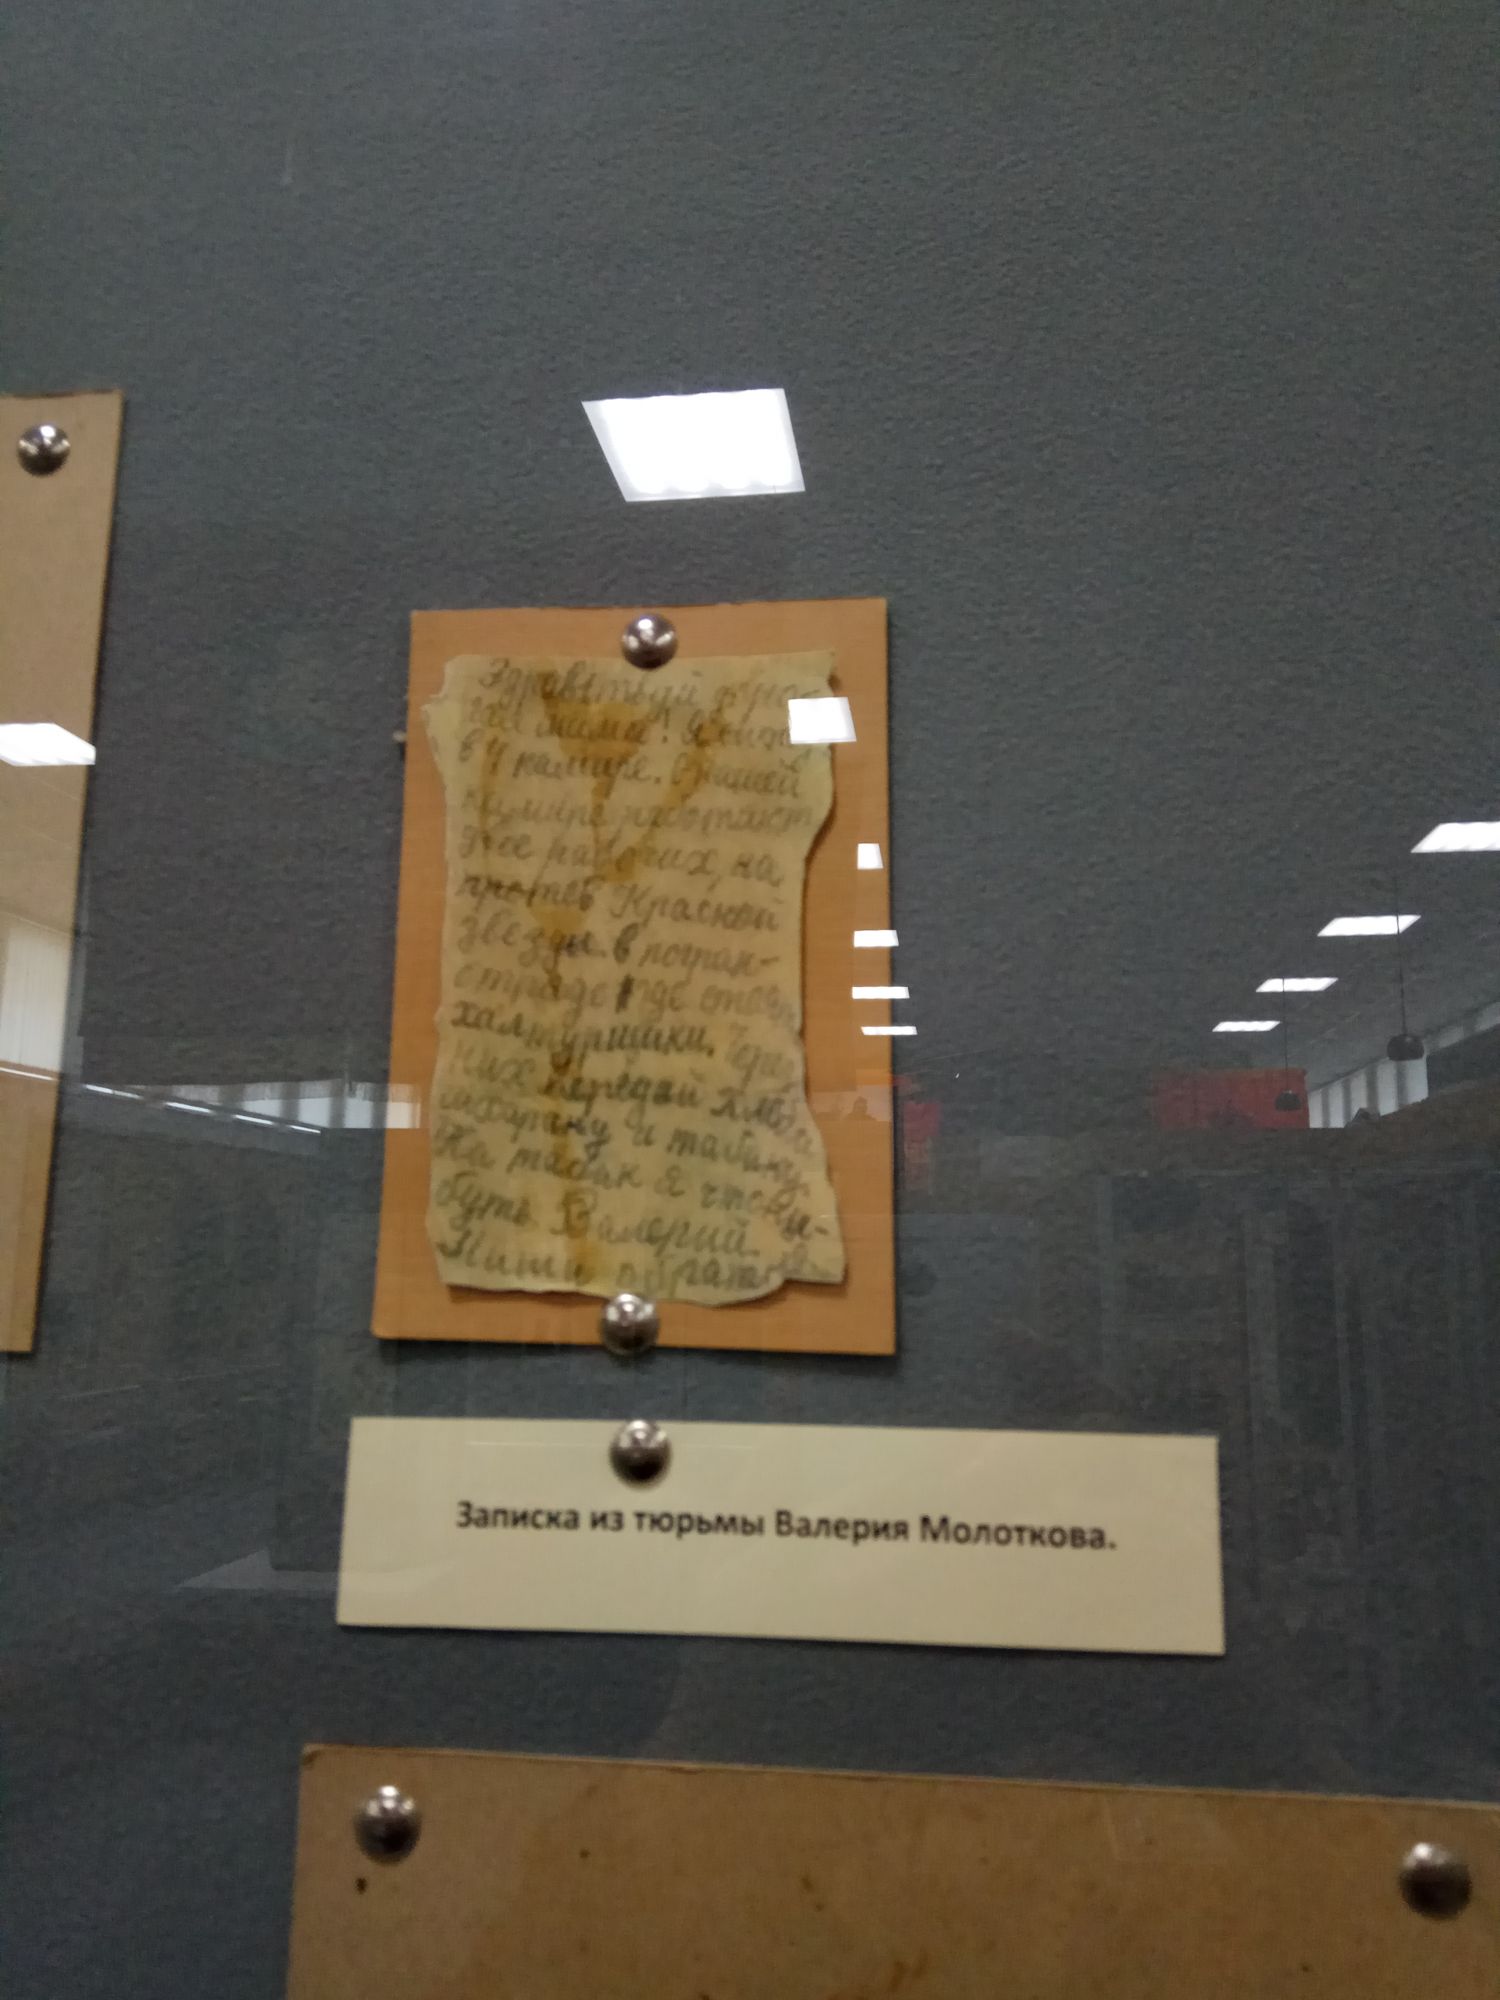 Здравствуй
мама! Я сижу
в 4 камаре. С нашей
камеры работают
двое рабочих, на
протев Красной
звезды. в погран-
отряде где
халтурщики. Через
них передай хлеба
махорки и табаку.
На табак я что ни-
буть Валерий.
Пиши обратно
Записка из тюрьмы Валерия Молоткова.